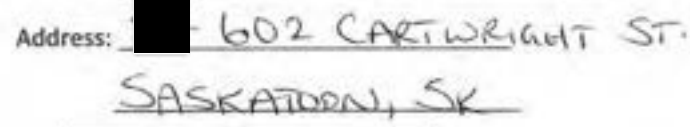 Address: - 602 CARTWRIGHT ST.
SASKATOON, SK